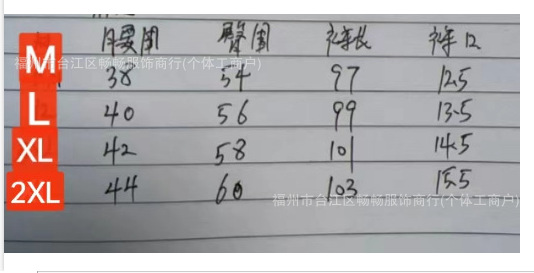 腰围 臀围 裤长 裤口
M 38 54 97 12.5
福州市台江区畅畅服饰商行(个体工商户)
L 40 56 99 13.5
XL 42 58 101 14.5
2XL 44 60 103 15.5
福州市台江区畅畅服饰商行(个体工商户)